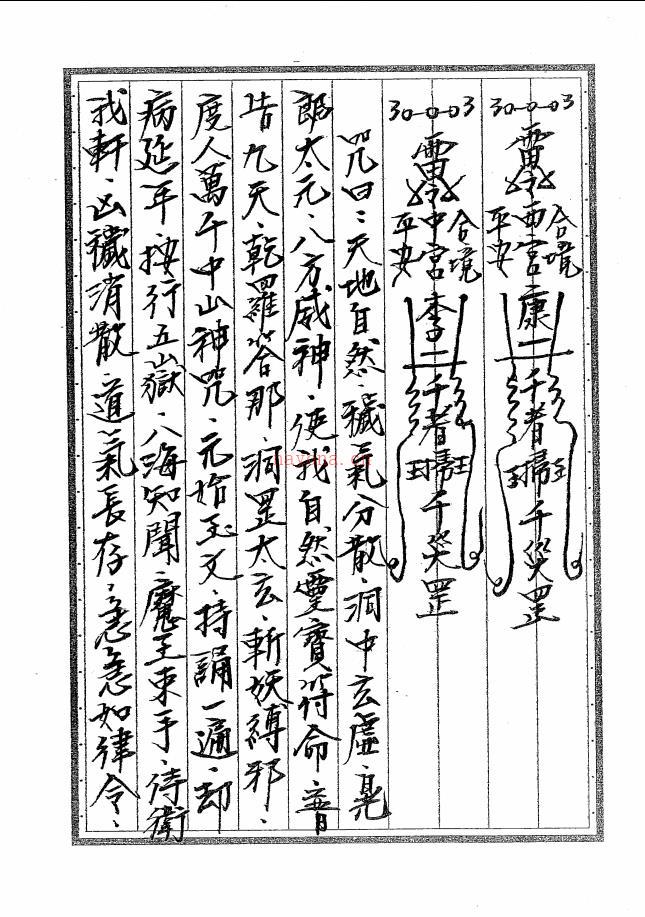 西宮康
合境
平安
二千者掃千災罡
中宮李
合境
平安
二千者掃千災罡
咒曰：天地自然、穢氣分散、洞中玄虛、晃
郎太元、八方威神、使我自然、靈寶符命、普
告九天、乾羅答那、洞罡太玄、斬妖縛邪、
度人萬千、中山神咒、元始玉文、持誦一遍、却
病延年、按行五嶽、八海知聞、魔王束手、侍衛
我軒、凶穢消散、道氣長存、急急如律令、